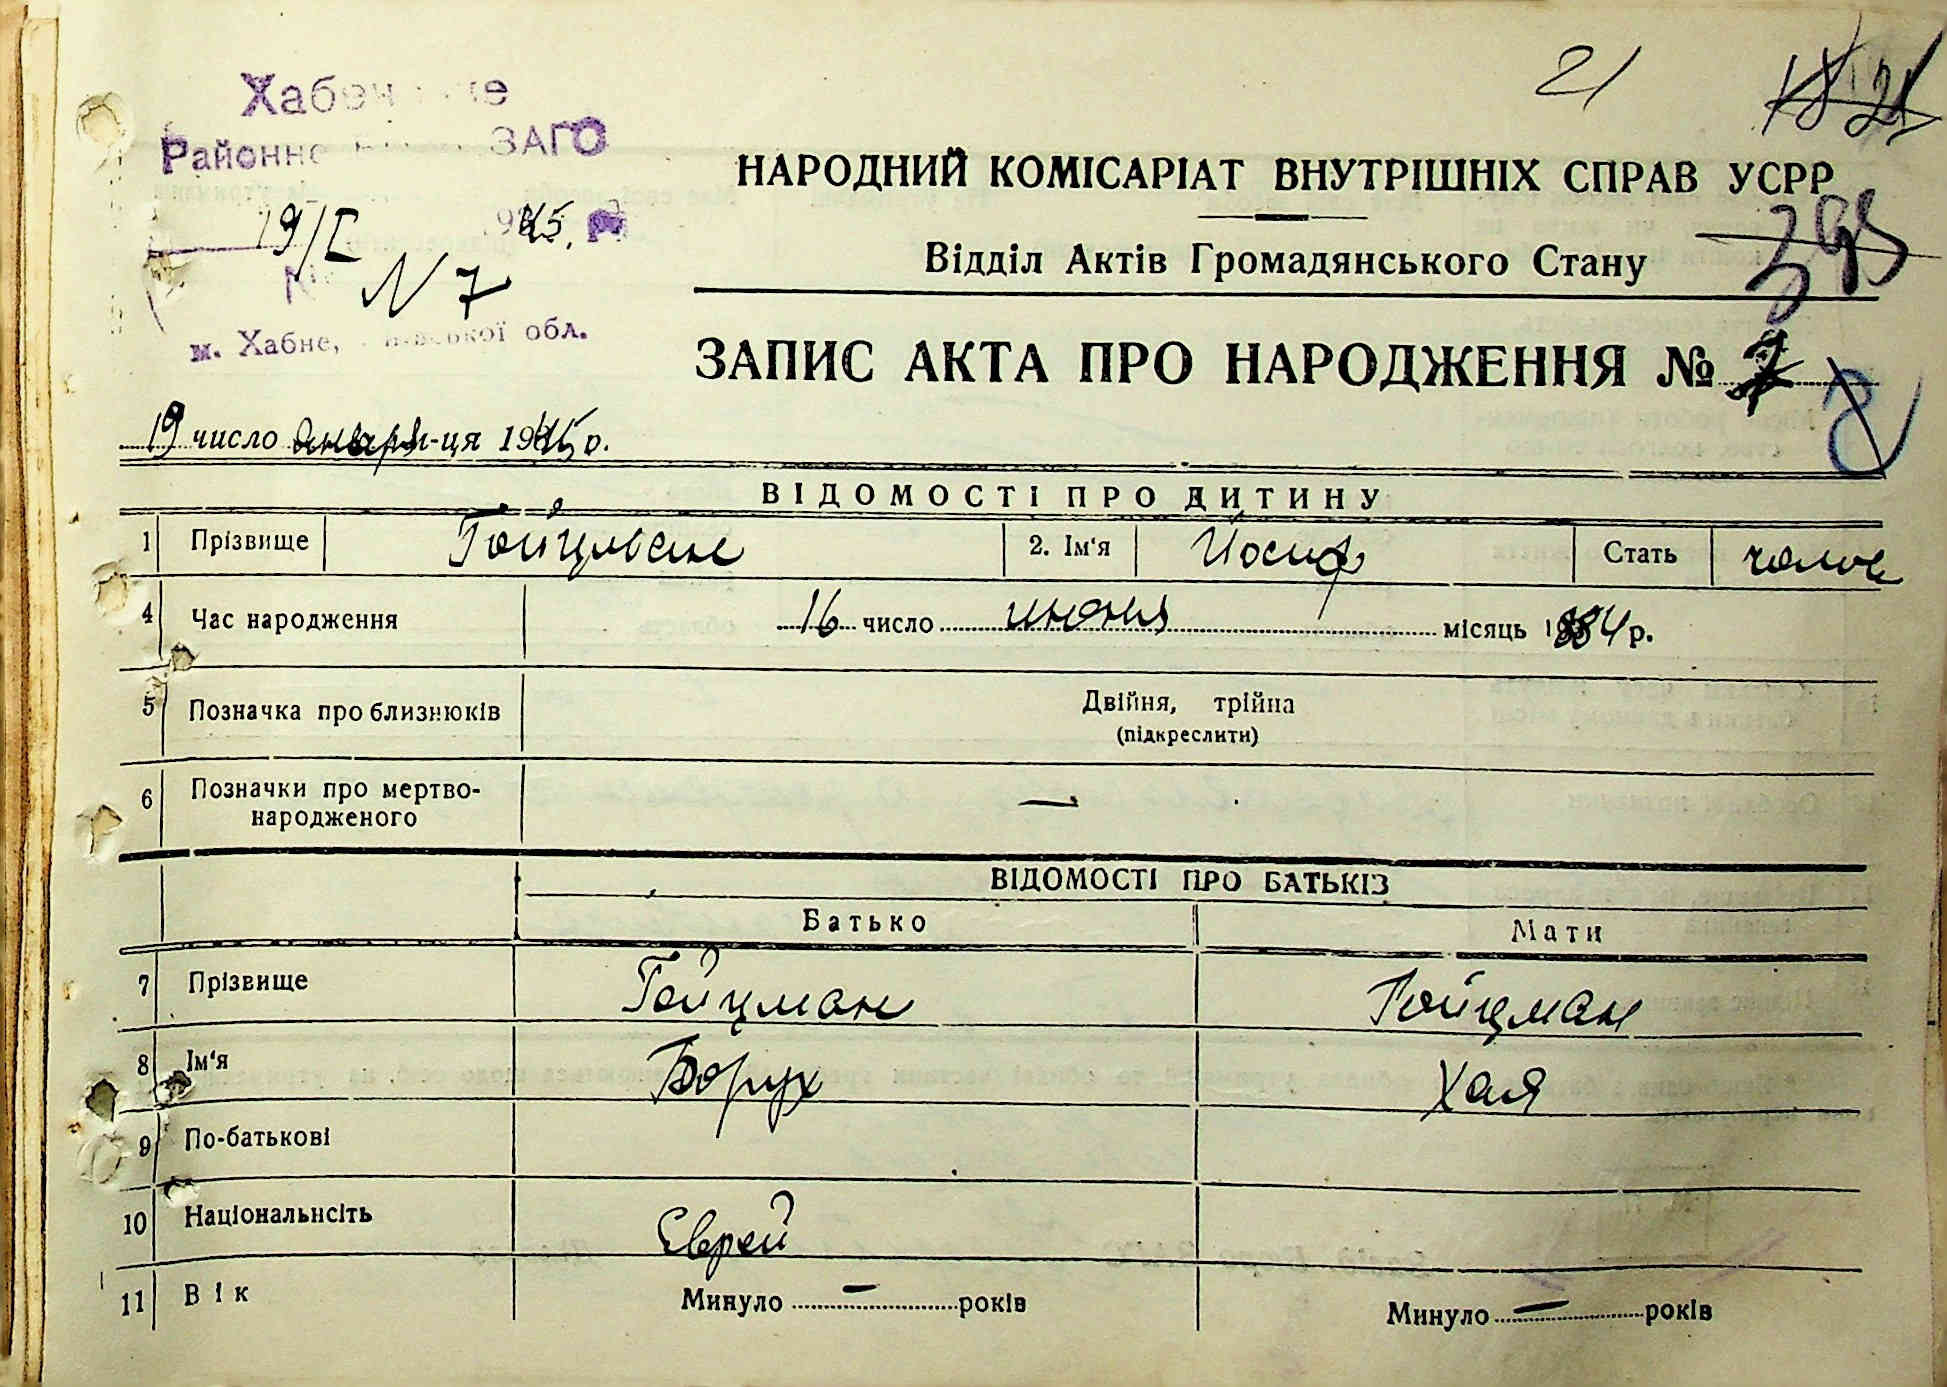 21
18 21
Районне ЗАГО
19/I 1945.
N 7
м. Хабне, обл.
НАРОДНИЙ КОМІСАРІАТ ВНУТРІШНІХ СПРАВ УСРР
395
Відділ Актів Громадянського Стану
ЗАПИС АКТА ПРО НАРОДЖЕННЯ № 7 8
19 число января м-ця 1945 р.
ВІДОМОСТІ ПРО ДИТИНУ
1 Прізвище Гойцман 2. Ім'я Йосиф Стать чолов
4 Час народження 16 число июня місяць 1884 р.
5 Позначка про близнюків Двійня, трійна
(підкреслити)
6 Позначки про мертво-
народженого —
ВІДОМОСТІ ПРО БАТЬКІВ
Батько Мати
7 Прізвище Гойцман Гойцман
8 Ім'я Борух Хая
9 По-батькові
10 Національнсіть Єврей
11 Вік Минуло — років Минуло — років